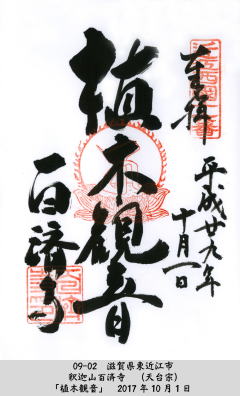 奉拝
平成廿九年
十月一日
植木観音
百済寺
09-02 滋賀県東近江市
釈迦山百済寺 （天台宗）
「植木観音」 2017年10月1日